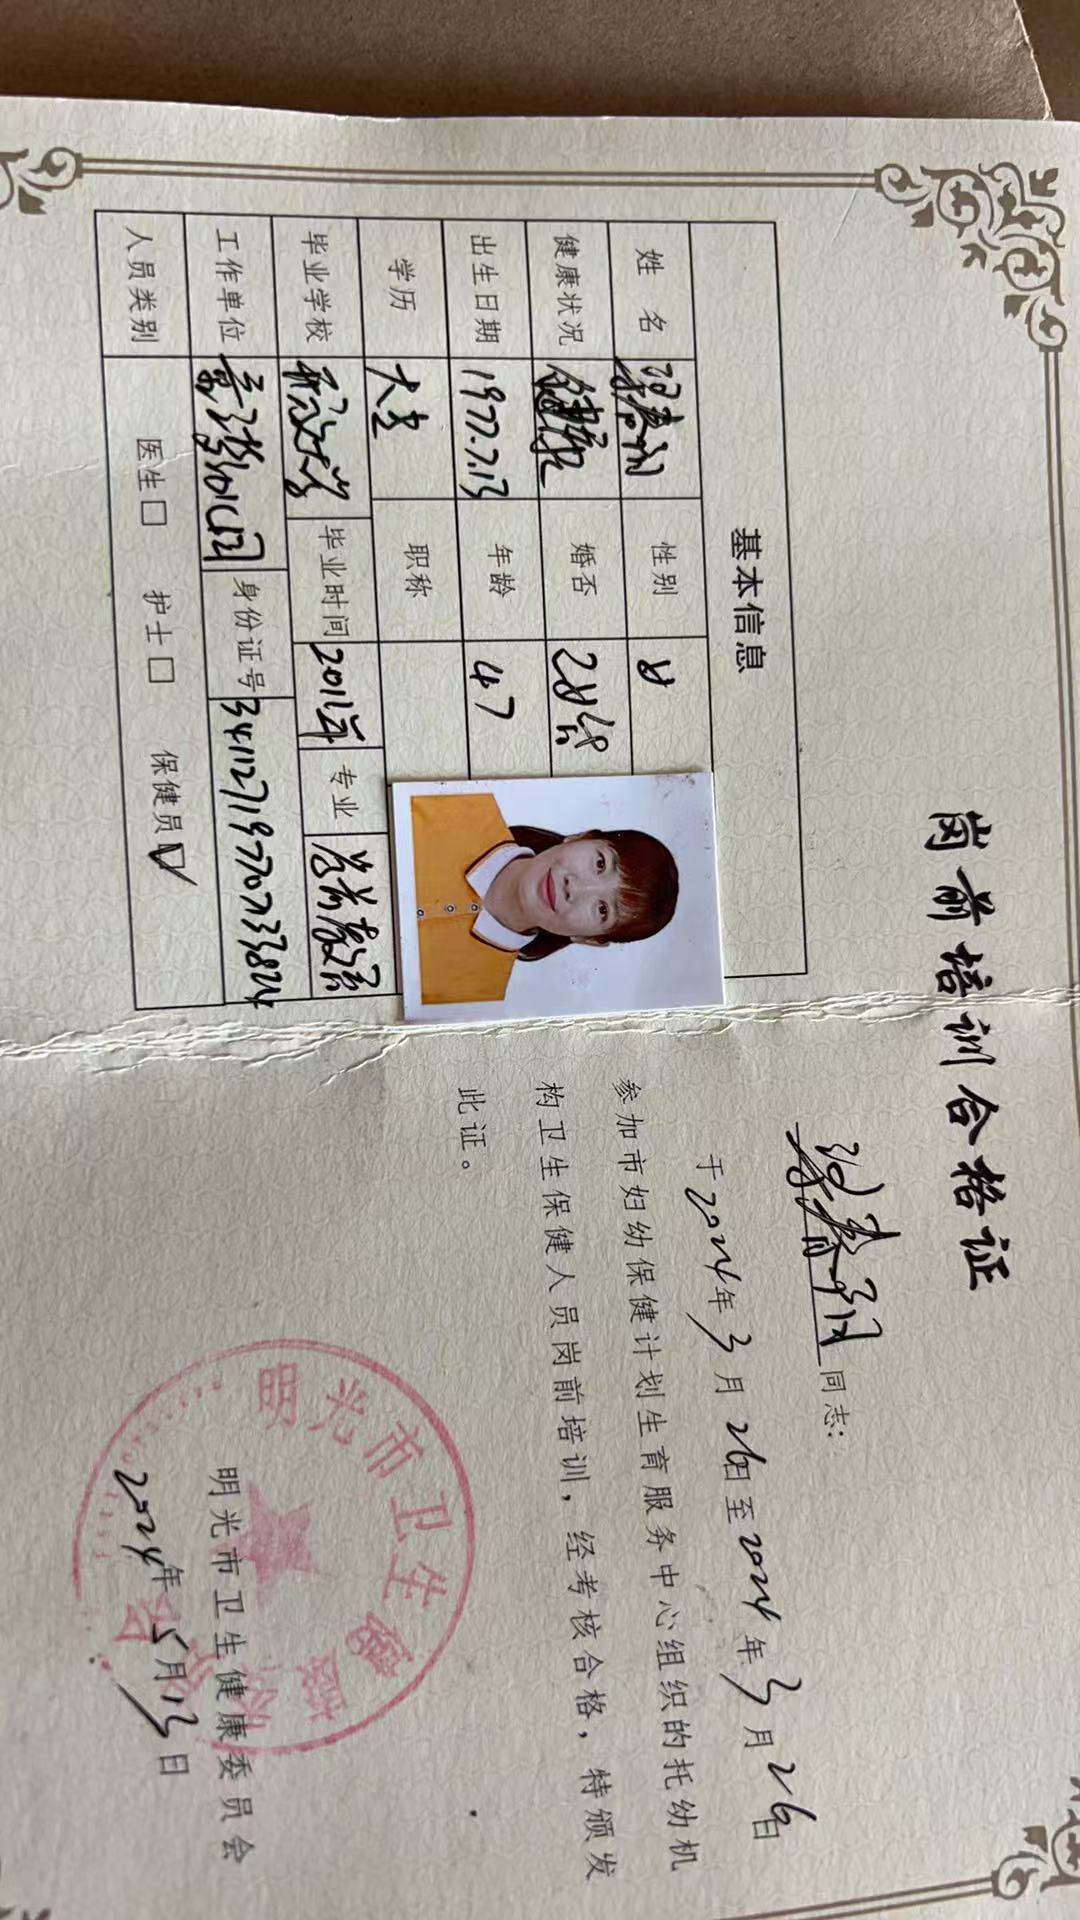 岗前培训合格证
基本信息
姓名 性别 女
健康状况 健康 婚否 已婚
出生日期 1977.7.13 年龄 47
学历 大专 职称
毕业学校 毕业时间 2011年 专业 学前教育
工作单位 身份证号
人员类别 医生□ 护士□ 保健员☑
同志:
于2024年3月26日至2024年3月26日
参加市妇幼保健计划生育服务中心组织的托幼机
构卫生保健人员岗前培训，经考核合格，特颁发
此证。
明光市卫生健康委员会
2024年5月13日
明光市卫生健康委员会